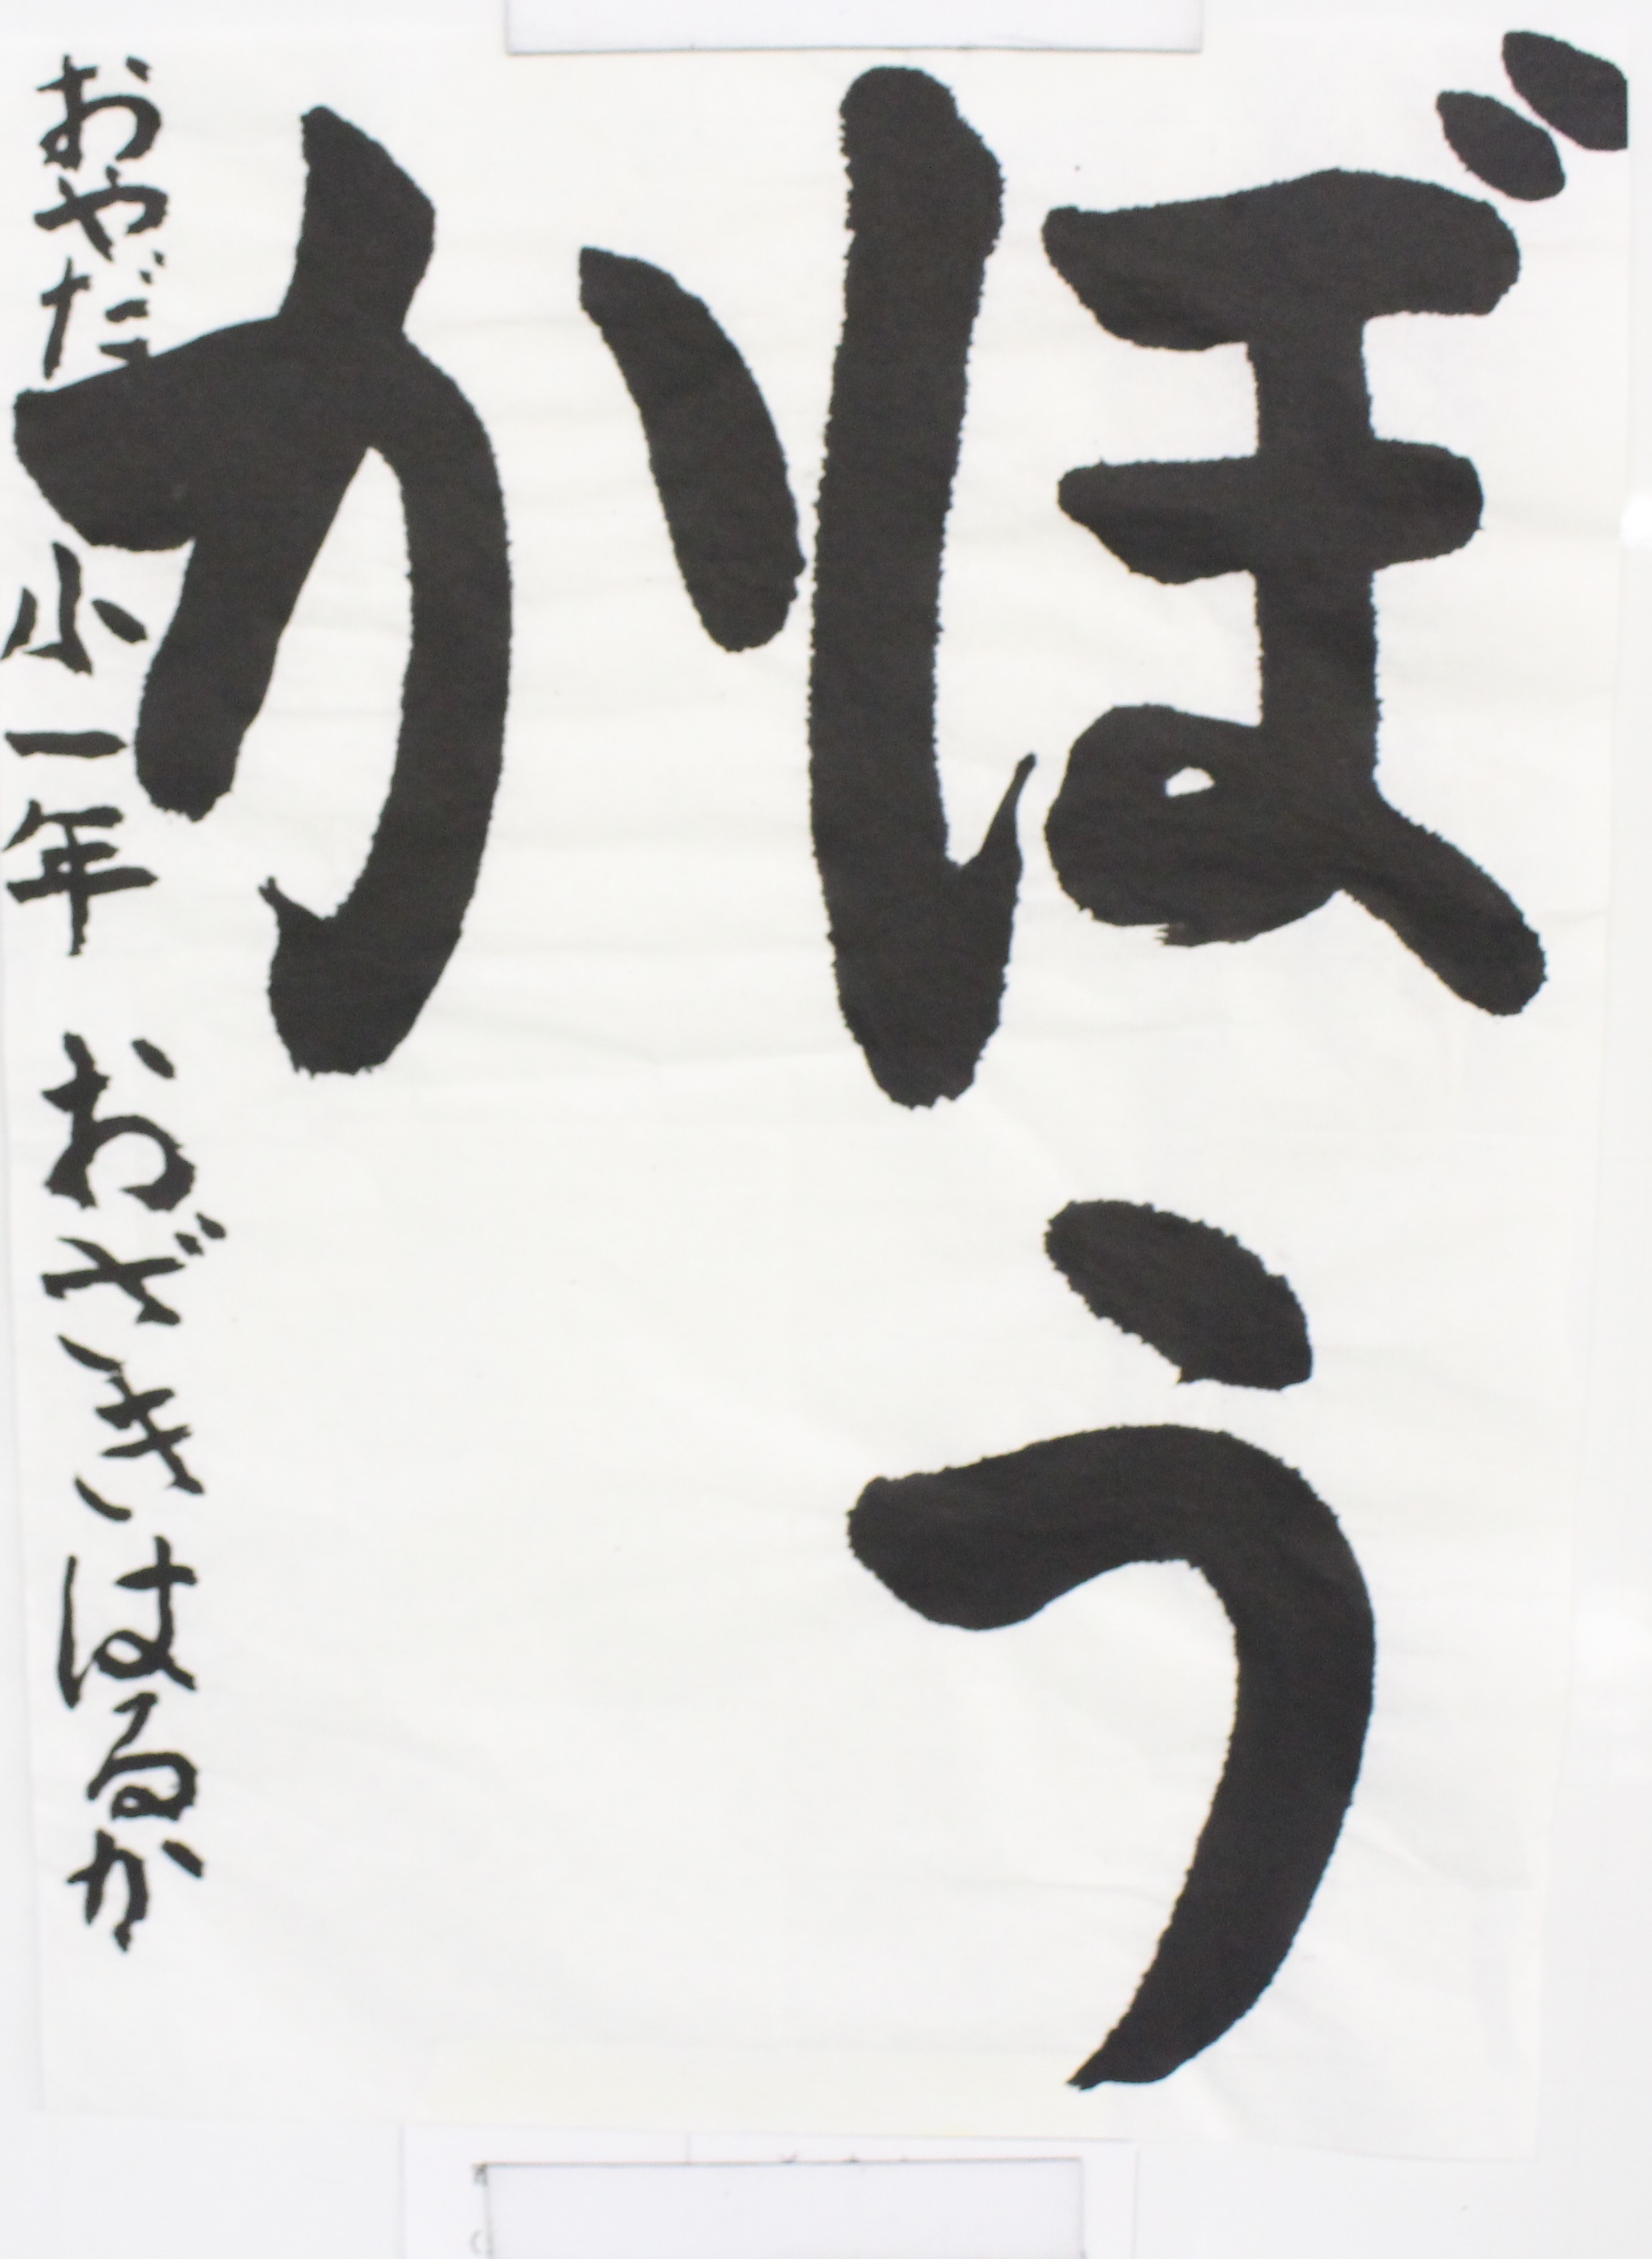 ぼう
か
おやだ小一年 おざきはるか